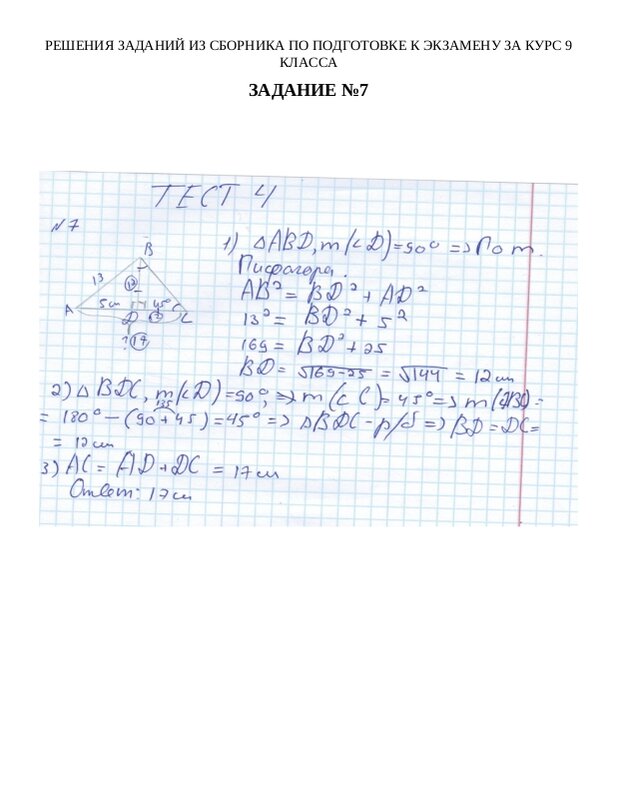 РЕШЕНИЯ ЗАДАНИЙ ИЗ СБОРНИКА ПО ПОДГОТОВКЕ К ЭКЗАМЕНУ ЗА КУРС 9
КЛАССА
ЗАДАНИЕ №7
ТЕСТ 4
№7
B
13
12
A
5см
45°
C
D
12
? 17
1) △ABD, m(∠D)=90° => По т.
Пифагора.
AB² = BD² + AD²
13² = BD² + 5²
169 = BD² + 25
BD = √169-25 = √144 = 12 см
2) △ BDC, m(∠D)=90°, => m(∠C)=45° => m(∠DBC) =
= 180° - (90+45) = 45° => △BDC - р/б => BD = DC =
135
= 12 см
3) AC = AD + DC = 17 см
Ответ: 17 см